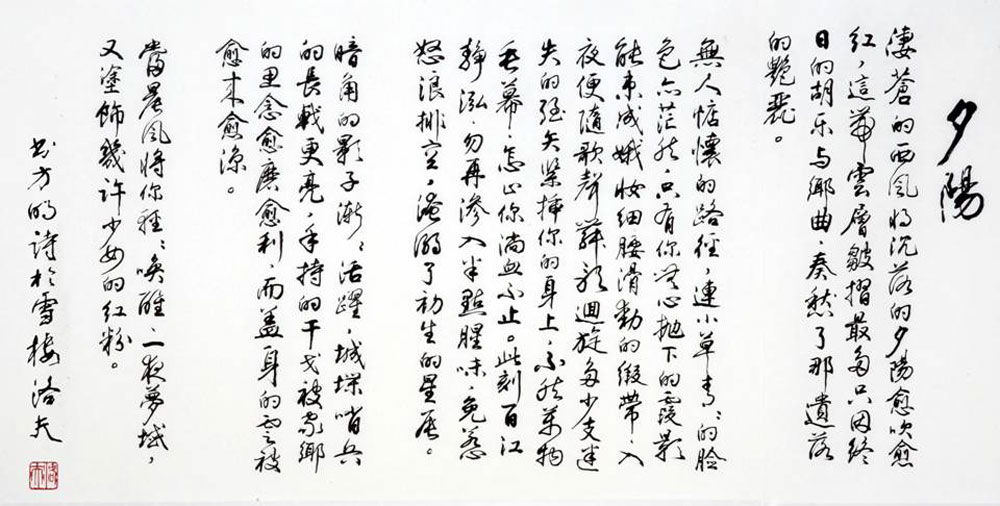 夕陽
淒蒼的西風將沉落的夕陽愈吹愈
紅,這雲層皺摺最多只因終
日的胡乐与鄉曲,奏愁了那遺落
的艷麗。
無人惦懷的路徑,連小草青々的臉
色亦茫然,只有你無心拋下的霞影
能束成娥妝細腰滑動的緞帶,入
夜便隨歌聲舞影迴旋多少支迷
失的强矢紧插你的身上,不然萬物
垂幕,怎你淌血不止。此刻百江
静泓,勿再滲入半點腥味,免惹
怒浪排空,淹溺了初生的星辰。
暗角的影子漸々活躍,城堞哨兵
的長戟更亮,手持的干戈被家鄉
的思念愈磨愈利,而蓋身的雲被
愈來愈涼。
當晨風將你輕々喚醒,一夜夢域,
又塗飾幾許少女的红粉。
书方明詩於雪楼洛夫